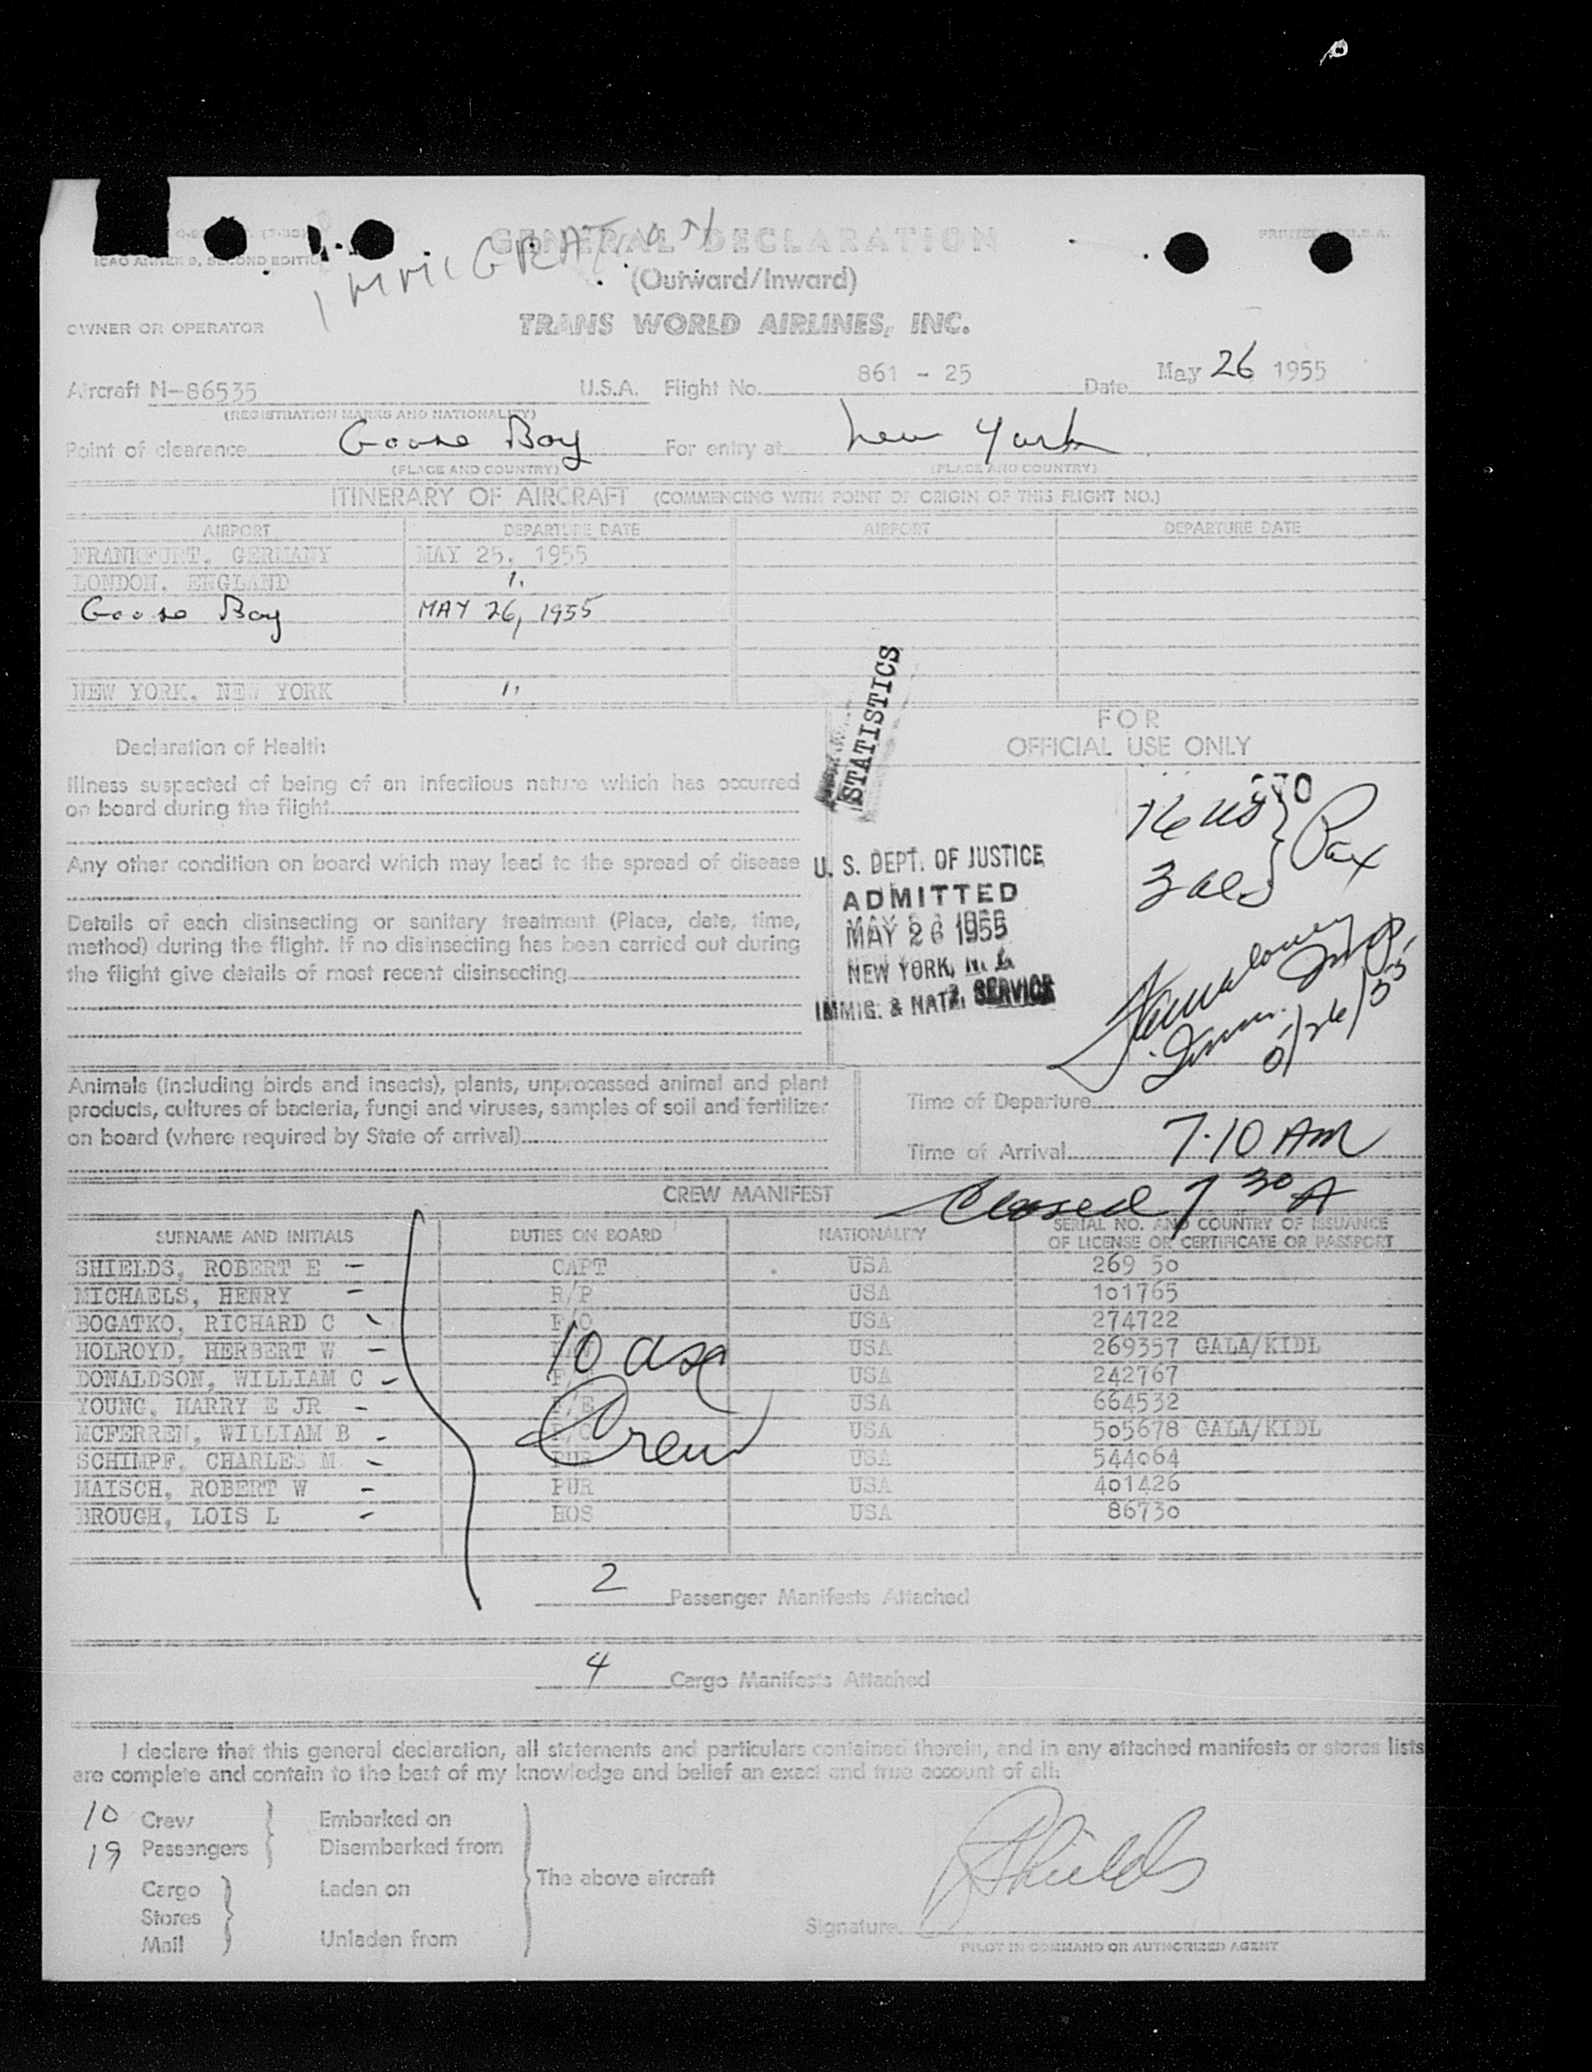 GENERAL DECLARATION
PRINTED IN U.S.A.
ICAO ANNEX 9, SECOND EDITION
IMMIGRATION
(Outward/Inward)
OWNER OR OPERATOR TRANS WORLD AIRLINES, INC.
Aircraft N-86535 U.S.A. Flight No. 861 - 25 Date May 26 1955
(REGISTRATION MARKS AND NATIONALITY)
Point of clearance Goose Bay For entry at New York
(PLACE AND COUNTRY) (PLACE AND COUNTRY)
ITINERARY OF AIRCRAFT (COMMENCING WITH POINT OF ORIGIN OF THIS FLIGHT NO.)
AIRPORT DEPARTURE DATE AIRPORT DEPARTURE DATE
FRANKFURT, GERMANY MAY 25, 1955
LONDON, ENGLAND "
Goose Bay MAY 26, 1955
NEW YORK, NEW YORK "
STATISTICS
FOR
OFFICIAL USE ONLY
Declaration of Health
Illness suspected of being of an infectious nature which has occurred
on board during the flight
Any other condition on board which may lead to the spread of disease
Details of each disinsecting or sanitary treatment (Place, date, time,
method) during the flight. If no disinsecting has been carried out during
the flight give details of most recent disinsecting
U. S. DEPT. OF JUSTICE
ADMITTED
MAY 26 1955
NEW YORK, N. Y.
IMMIG. & NATZ. SERVICE
16 US
3 als
Pax
5/26/55
Animals (including birds and insects), plants, unprocessed animal and plant
products, cultures of bacteria, fungi and viruses, samples of soil and fertilizer
on board (where required by State of arrival)
Time of Departure
Time of Arrival 7.10 AM
CREW MANIFEST Closed 7 30 A
SURNAME AND INITIALS DUTIES ON BOARD NATIONALITY SERIAL NO. AND COUNTRY OF ISSUANCE
OF LICENSE OR CERTIFICATE OR PASSPORT
SHIELDS, ROBERT E - CAPT USA 269 50
MICHAELS, HENRY - R/P USA 101765
BOGATKO, RICHARD C USA 274722
HOLROYD, HERBERT W - USA 269357 GALA/KIDL
DONALDSON, WILLIAM C - USA 242767
YOUNG, HARRY E JR - F/E USA 664532
MCFERREN, WILLIAM B - USA 505678 GALA/KIDL
SCHIMPF, CHARLES M - PUR USA 544064
MAISCH, ROBERT W - PUR USA 401426
BROUGH, LOIS L - HOS USA 86730
10 usa
Crew
2 Passenger Manifests Attached
4 Cargo Manifests Attached
I declare that this general declaration, all statements and particulars contained therein, and in any attached manifests or stores lists
are complete and contain to the best of my knowledge and belief an exact and true account of all:
10 Crew Embarked on
19 Passengers Disembarked from
The above aircraft
Cargo Laden on
Stores
Mail Unladen from
Signature R Shields
PILOT IN COMMAND OR AUTHORIZED AGENT